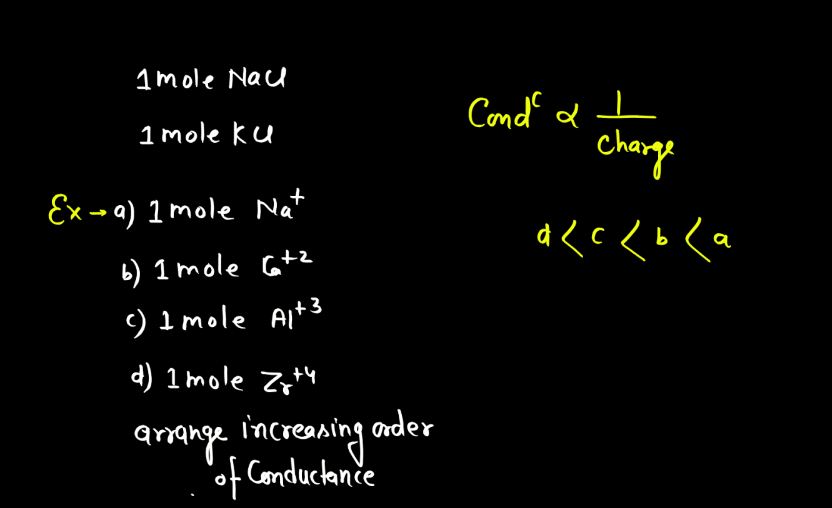 1 mole NaCl
1 mole KCl
Cond^c ∝ 1/charge
Ex → a) 1 mole Na^+
b) 1 mole Ca^+2
c) 1 mole Al^+3
d) 1 mole Zr^+4
d < c < b < a
arrange increasing order
of Conductance